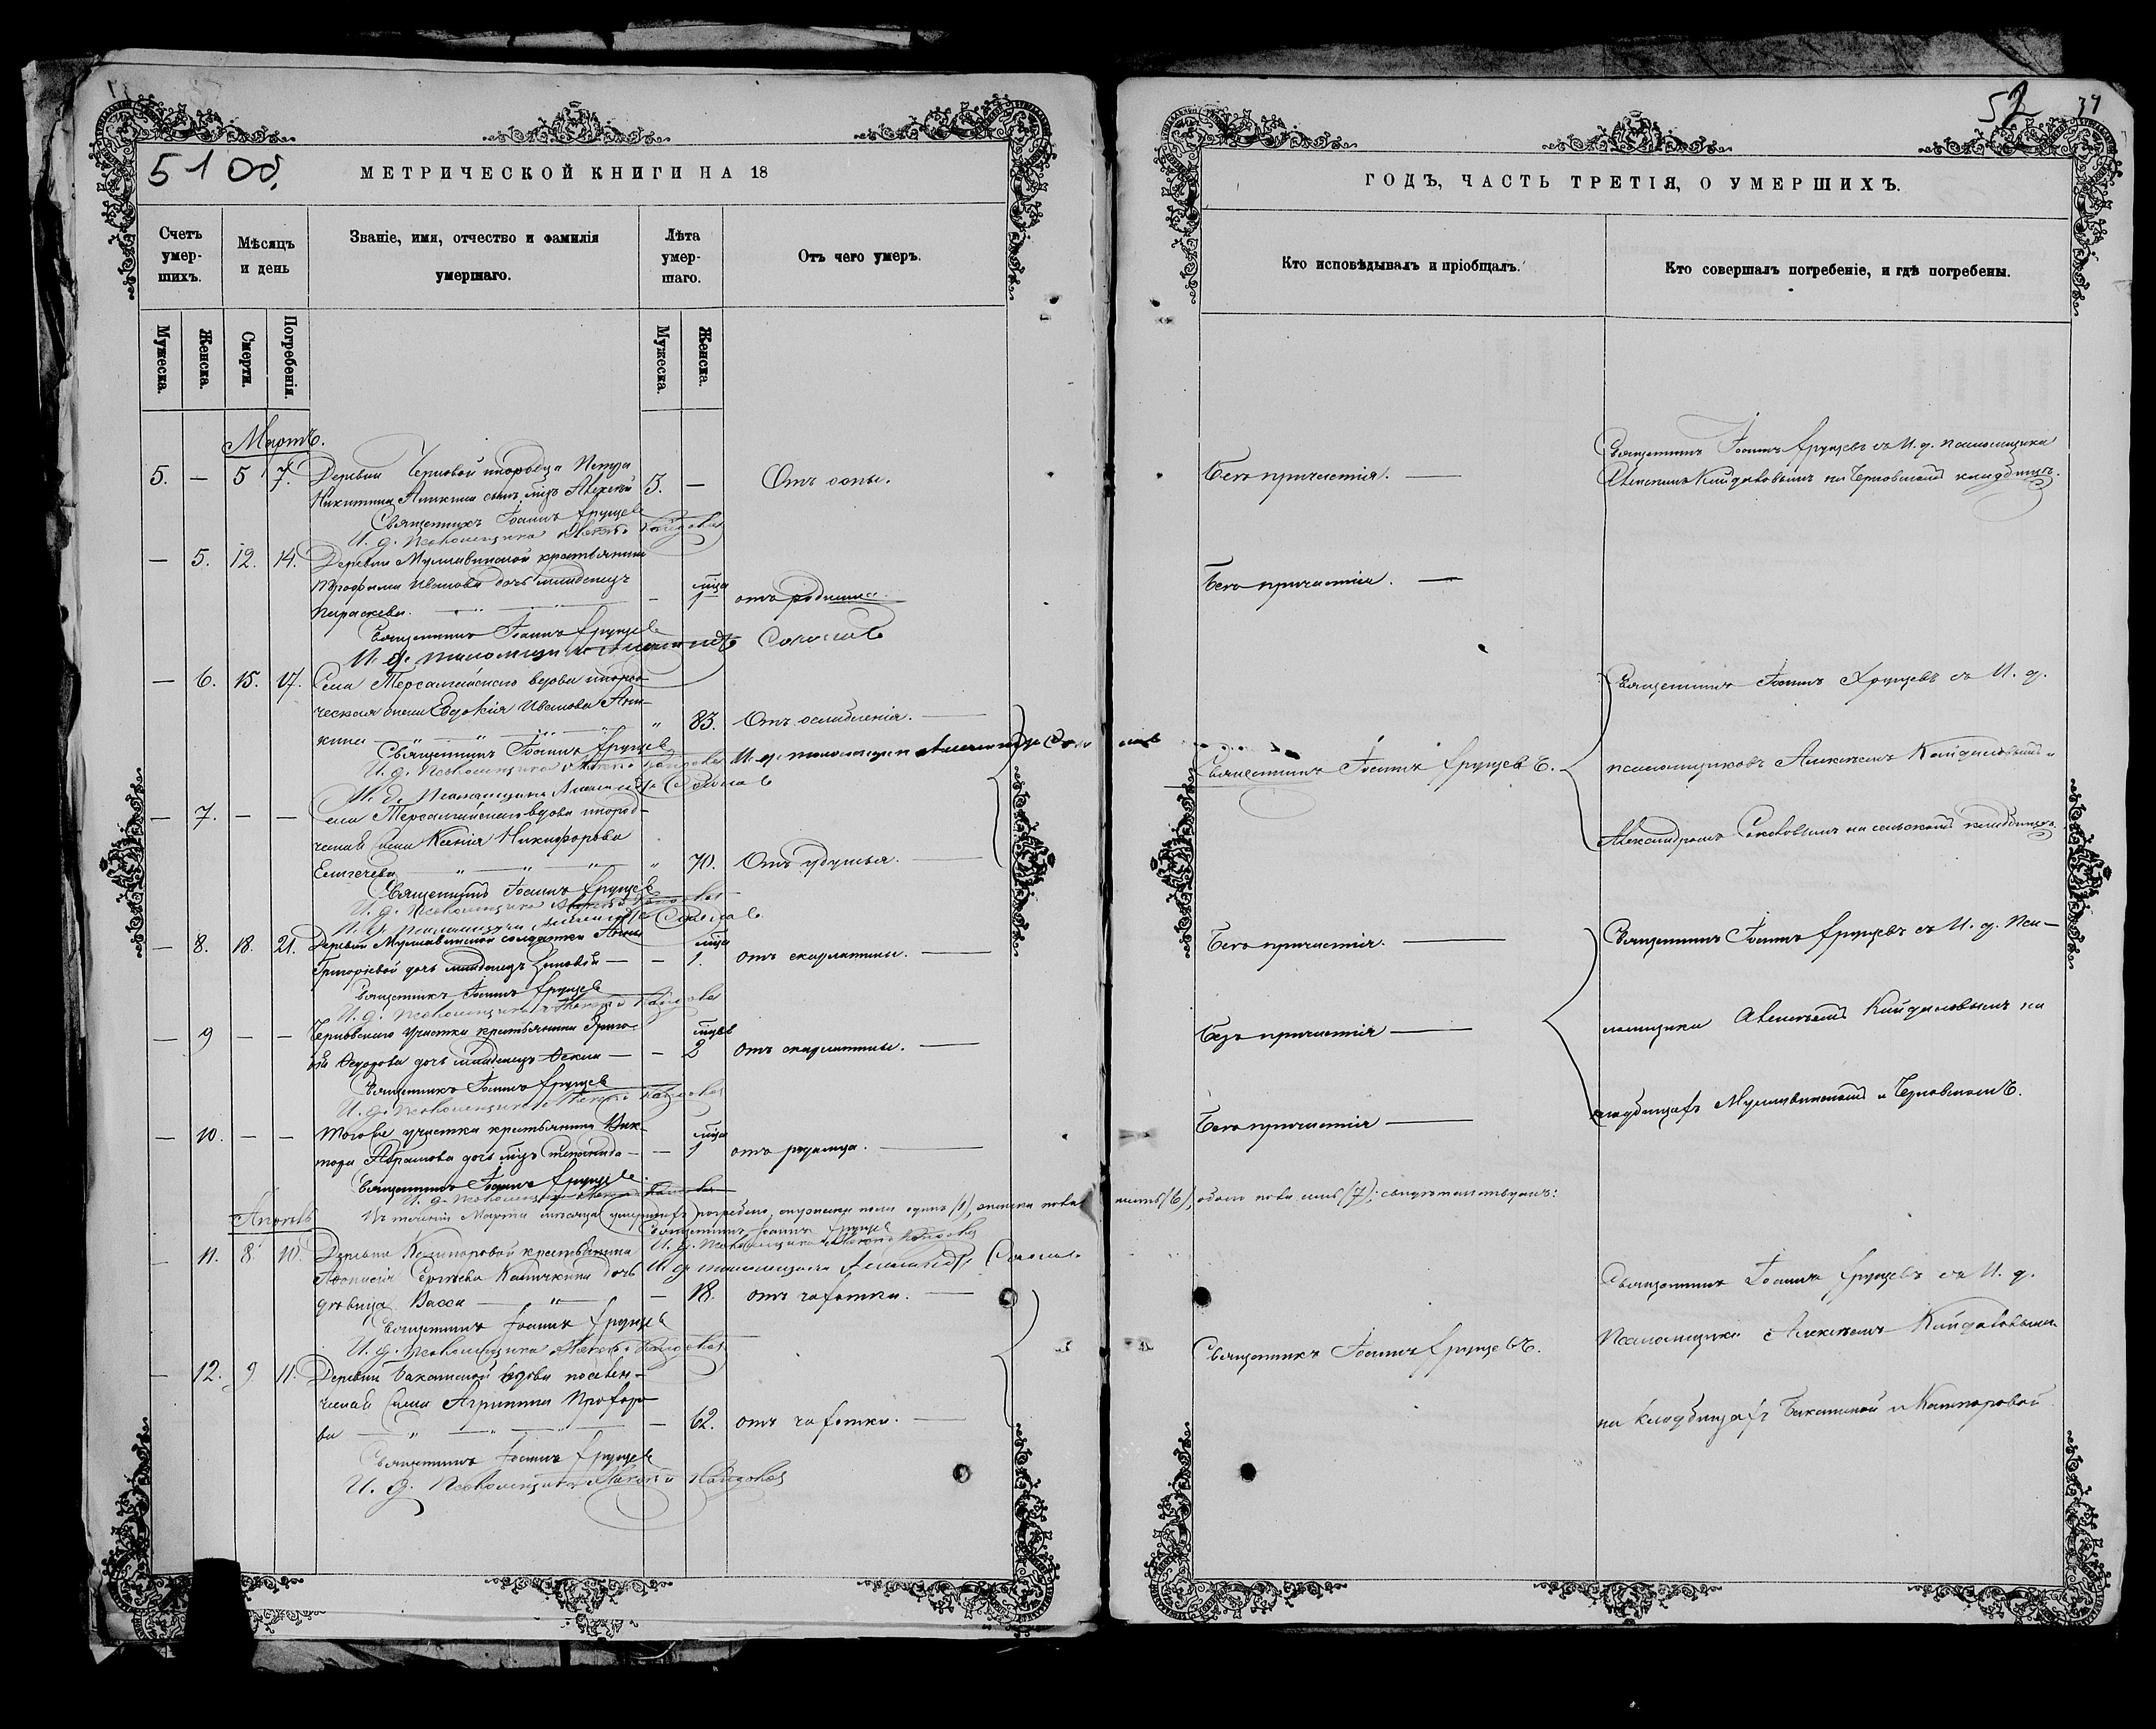 51 об.
МЕТРИЧЕСКОЙ КНИГИ НА 18
Счетъ умер-шихъ.
Мѣсяцъ и день
Званіе, имя, отчество и фамилія умершаго.
Лѣта умер-шаго.
Отъ чего умеръ.
Мужеска.
Женска.
Смерти.
Погребенія.
Мужеска.
Женска.
Мартъ.
5. — 5 7. Деревни Черновой инородца Петра
Никитина Аникина сынъ млд. Алексѣй 3. — Отъ оспы.
Священникъ Іоаннъ Хрущевъ
И. д. Псаломщика Алексѣй Кайдаловъ
— 5. 12. 14. Деревни крестьянина
Трофима Иванова дочь младенецъ мѣца
Параскева. — 1 отъ родимца.
Священникъ Іоаннъ Хрущевъ
И. д. псаломщика Александръ Соколовъ
— 6. 15. 17. Села вдова инород-
ческая жена Евдокія Иванова Ани-
кина " 83. Отъ ослабленія.
Священникъ Іоаннъ Хрущевъ
И. д. Псаломщика Алексѣй Кайдаловъ И. д. псаломщика Александръ Соколовъ
И. д. Псаломщика Александръ Соколовъ
— 7. — — Села вдова инород-
Ксенія Никифорова
" 70. Отъ удушья.
Священникъ Іоаннъ Хрущевъ
И. д. Псаломщика Алексѣй Кайдаловъ
И. д. Псаломщика Александръ Соколовъ
— 8. 18. 21. Деревни солдатки Анны мѣца
Григорьевой дочь младенецъ — — 1. отъ скарлатины.
Священникъ Іоаннъ Хрущевъ
И. д. Псаломщика Алексѣй Кайдаловъ
— 9 — — Черновского участка крестьянина Григо- мѣцев
рія Ѳедорова дочь младенецъ — — 2 отъ скарлатины.
Священникъ Іоаннъ Хрущевъ
И. д. Псаломщика Алексѣй Кайдаловъ
— 10. — — Того же участка крестьянина Вик- мѣца
тора Абрамова дочь млд. — — 1 отъ родимца.
Священникъ Іоаннъ Хрущевъ.
И. д. Псаломщика Алексѣй Кайдаловъ
Въ теченіи Марта мѣсяца умершихъ погребено, мужеска пола одинъ (1), женска пола шесть (6), обоего пола семь (7); свидѣтельствуемъ:
Апрѣль
Священникъ Іоаннъ Хрущевъ
И. д. Псаломщика Алексѣй Кайдаловъ
И. д. псаломщика Александръ Соколовъ
— 11. 8. 10. Деревни крестьянина
Сергѣева дочь
дѣвица Васса — " — — 18. отъ чахотки.
Священникъ Іоаннъ Хрущевъ
И. д. Псаломщика Алексѣй Кайдаловъ
— 12. 9 11. Деревни вдова
Агрипина
ва — 62. отъ чахотки.
Священникъ Іоаннъ Хрущевъ
И. д. Псаломщика Алексѣй Кайдаловъ
52
ГОДЪ, ЧАСТЬ ТРЕТІЯ, О УМЕРШИХЪ.
Кто исповѣдывалъ и пріобщалъ.
Кто совершалъ погребеніе, и гдѣ погребены.
Безъ причастія.
Священникъ Іоаннъ Хрущевъ съ И. д. псаломщика
Алексѣемъ Кайдаловымъ на Черновскомъ кладбищѣ.
Безъ причастія.
Священникъ Іоаннъ Хрущевъ.
Священникъ Іоаннъ Хрущевъ съ И. д.
псаломщиковъ Алексѣемъ Кайдаловымъ и
Александромъ Соколовымъ на сельскомъ кладбищѣ.
Безъ причастія.
Безъ причастія
Безъ причастія
Священникъ Іоаннъ Хрущевъ съ И. д. Пса-
ломщика Алексѣемъ Кайдаловымъ на
кладбищахъ и Черновскомъ.
Священникъ Іоаннъ Хрущевъ.
Священникъ Іоаннъ Хрущевъ съ И. д.
Псаломщика Алексѣемъ Кайдаловымъ
на кладбищахъ